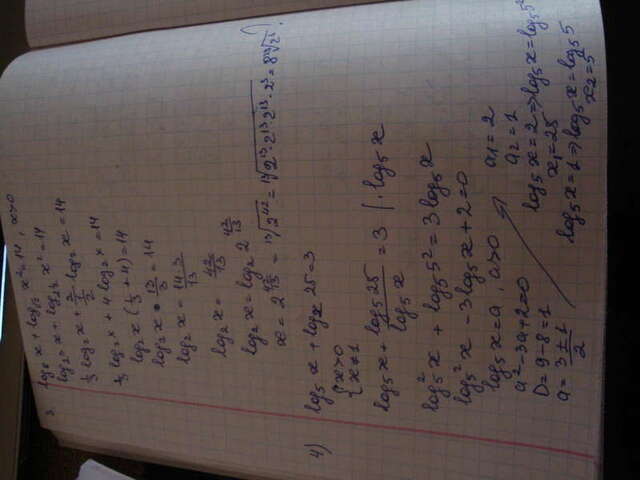 3. log₈ x + log_√2 x² = 14, x>0
log_2³ x + log_2^½ x² = 14
⅓ log₂ x + 2/½ · log₂ x = 14
⅓ log₂ x + 4 log₂ x = 14
log₂ x (⅓ + 4) = 14
log₂ x · 13/3 = 14
log₂ x = 14·3/13
log₂ x = 42/13
log₂ x = log₂ 2^42/13
x = 2^42/13 = ¹³√2⁴² = ¹³√2¹³·2¹³·2¹³·2³ = 8 ¹³√2³
4) log₅ x + logₓ 25 = 3
{x>0
{x≠1
log₅ x + log₅ 25 / log₅ x = 3 | · log₅ x
log₅² x + log₅ 5² = 3 log₅ x
log₅² x − 3 log₅ x + 2 = 0
log₅ x = a, a>0
a² − 3a + 2 = 0
D = 9 − 8 = 1
a = 3 ± 1 / 2
a₁ = 2
a₂ = 1
log₅ x = 2 ⇒ log₅ x = log₅ 5²
x₁ = 25
log₅ x = 1 ⇒ log₅ x = log₅ 5
x₂ = 5